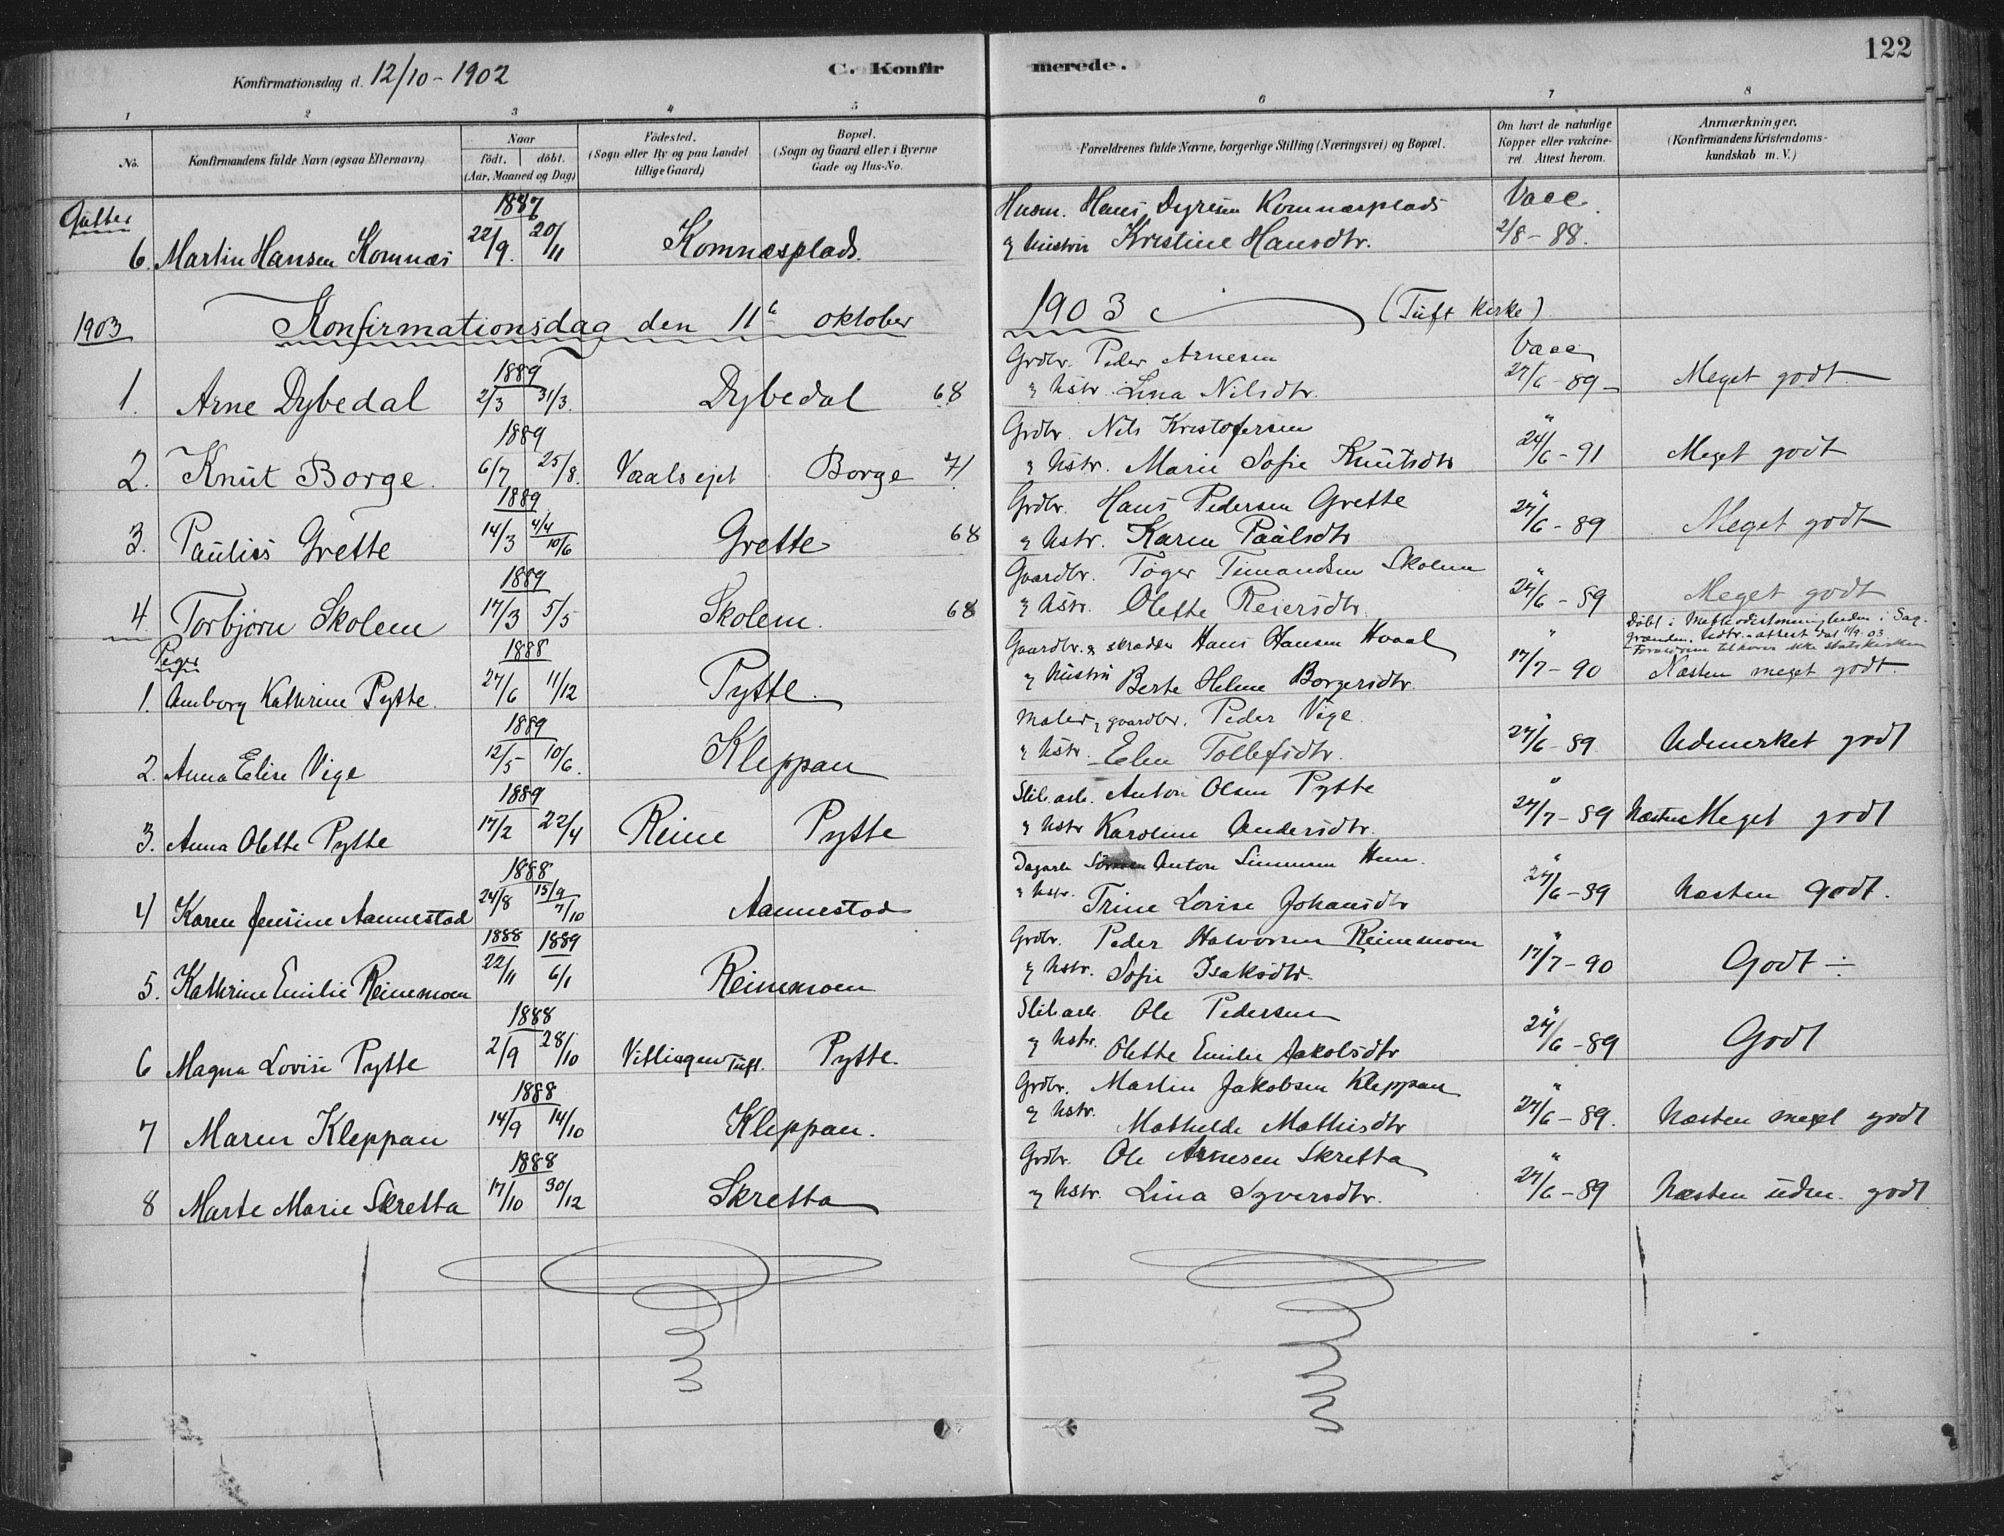 122
Konfirmationsdag d. 12/10-1902
C. Konfirmerede.
1 2 3 4 5 6 7 8
No.
Konfirmandens fulde Navn (ogsaa Efternavn)
Naar
født. døbt.
(Aar, Maaned og Dag)
Fødested.
(Sogn eller By og paa Landet
tillige Gaard)
Bopæl.
(Sogn og Gaard eller i Byerne
Gade og Hus-No.
Forældrenes fulde Navne, borgerlige Stilling (Næringsvei) og Bopæl.
Om havt de naturlige
Kopper eller vakcine-
ret. Attest herom.
Anmærkninger.
(Konfirmandens Kristendoms-
kundskab m. V.)
Gutter 1887 Husm. Hans Dyresen Komnæsplads Vacc.
6. Martin Hansen Komnæs 22/9. 20/11 Komnæsplads. & hustru Kristine Hansdtr. 2/8-88.
1903 Konfirmationsdag den 11te oktober 1903 (Tuft kirke)
1889 Grdbr. Peder Arnesen Vacc
1. Arne Dybedal 2/3 31/3. Dybedal 68 & hstr. Lina Nilsdtr. 27/6-89 Meget godt
1889 Grdbr. Nils Kristofersen "
2. Knut Borge. 6/7 25/8. Borge 71 & hstr. Marie Sofie Knutsdtr 24/6-91 Meget godt
1889 Grdbr. Hans Pedersen Grette "
3. Paulius Grette 14/3 4/4 10/6 Grette 68 & hstr. Karen Paalsdtr 27/6-89 Meget godt
1889 Gaardbr. Toger Timandsen Skolem "
4 Torbjørn Skolem 17/3 5/5 Skolem. 68 & hstr. Olette Reiersdtr. 27/6-89 Meget godt
Døbt i Methodistmenigheden i
Piger 1888 Gaardbr. & skrædder Hans Hansen Hvaal " Forældrene tilhører ikke statskirken
1. Amborg Kathrine Pytte. 27/6 11/12 Pytte. & hustru Berte Helene Borgersdtr. 17/7-90 Næsten meget godt.
1889 Maler & gaardbr. Peder Vige. "
2. Anna Elise Vige 12/5 10/6. Kleppan & hstr. Elen Tollefsdtr. 27/6-89 Udmerket godt
1889 Slib.arb. Anton Olsen Pytte "
3. Anna Olette Pytte 17/2 22/4 Reine Pytte & hstr Karoline Andersdtr. 27/7-89 Næsten Meget godt
1888 Dagarb Anton Simensen "
4 Karen Jensine Aannestad 24/8 15/9 7/10 Aannestad & hstr. Trine Lovise Johansdtr 27/6-89 Næsten godt.
1888 1889 Grdbr. Peder Halvorsen Reinemoen "
5. Kathrine Emilie Reinemoen 22/11 6/1 Reinemoen & hstr. Sofie Isaksdtr. 17/7-90 Godt ÷
1888 Slib.arb. Ole Pedersen "
6 Magna Lovise Pytte 2/9 28/10 Vittingen Tuft. Pytte. & hstr. Olette Emilie Jakobsdtr 27/6-89 Godt
1888 Grdbr. Martin Jakobsen Kleppan "
7 Maren Kleppan 14/9 14/10 Kleppan. & hstr. Mathilde Mathisdtr 27/6-89. Næsten meget godt
1888 Grdbr. Ole Arnesen Skretta "
8 Marte Marie Skretta 17/10 30/12 Skretta & hstr. Lina Syversdtr. 27/6-89 Næsten udm. godt